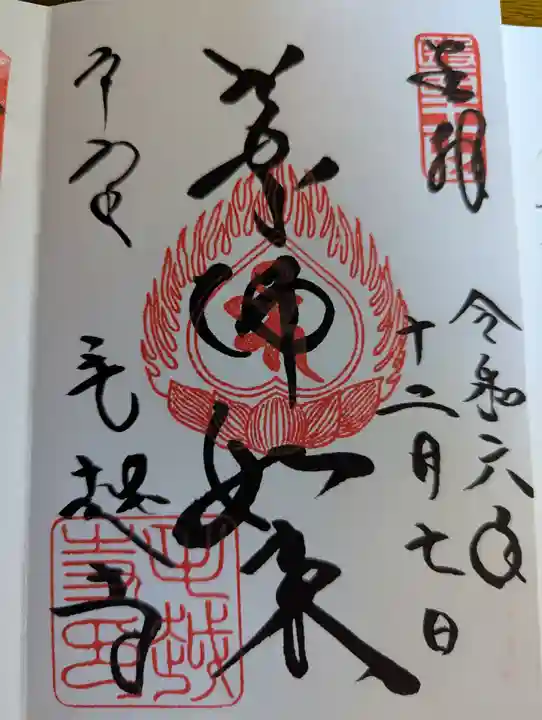 奉拝
令和六年
十二月七日
薬師如来
平泉
毛越寺
毛越寺印